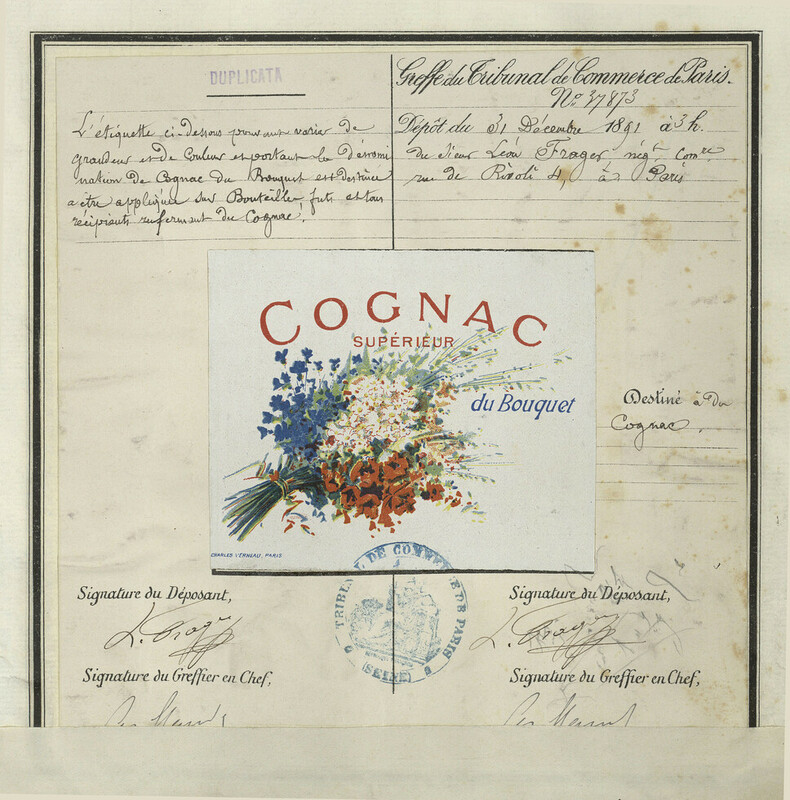 DUPLICATA
L'étiquette ci-dessous pouvant varier de
grandeur et de Couleur et portant la Dénomi
nation de Cognac du Bouquet est destinée
a être appliquée sur Bouteilles, futs et tous
récipients renfermant du Cognac.
Greffe du Tribunal de Commerce de Paris.
No 37873
Dépôt du 31 Décembre 1891 à 3 h.
du sieur Léon Frager négt Comre
rue de Rivoli 4, à Paris
COGNAC
SUPÉRIEUR
du Bouquet
CHARLES VERNEAU, PARIS
Destiné à du
Cognac.
TRIBUNAL DE COMMERCE DE PARIS
(SEINE)
Signature du Déposant,
L. Frager
Signature du Greffier en Chef,
Signature du Déposant,
L. Frager
Signature du Greffier en Chef,